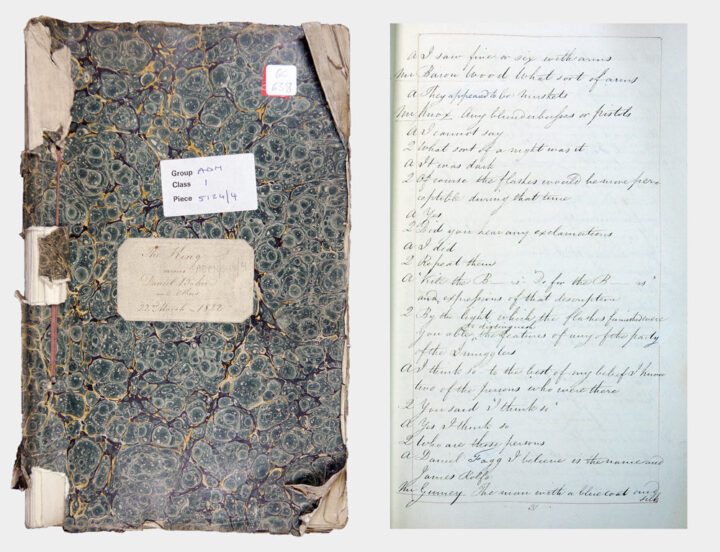 GC
638
Group ADM
Class 1
Piece 5124/4
The King
versus
Daniel
and others
22nd March - 1822
A I saw five or six with arms
Mr Baron Wood What sort of arms
A They appeared to be muskets
Mr Knox Any blunderbusses or pistols
A I cannot say
Q What sort of a night was it
A It was dark
Q Of course the flashes would be more per
ceptible during that time
A Yes
Q Did you hear any exclamations
A I did
Q Repeat them
A "Kill the B— is" Do for the B— is"
and expressions of that description
Q By the light which the flashes furnished were
you able to distinguish the features of any of the party
of the Smugglers
A I think so to the best of my belief I knew
two of the persons who were there
Q You said "I think so"
A Yes I think so
Q Who are those persons
A Daniel Fagg I believe is the name and
James Rolfe
Mr Gurney The man with a blue coat and